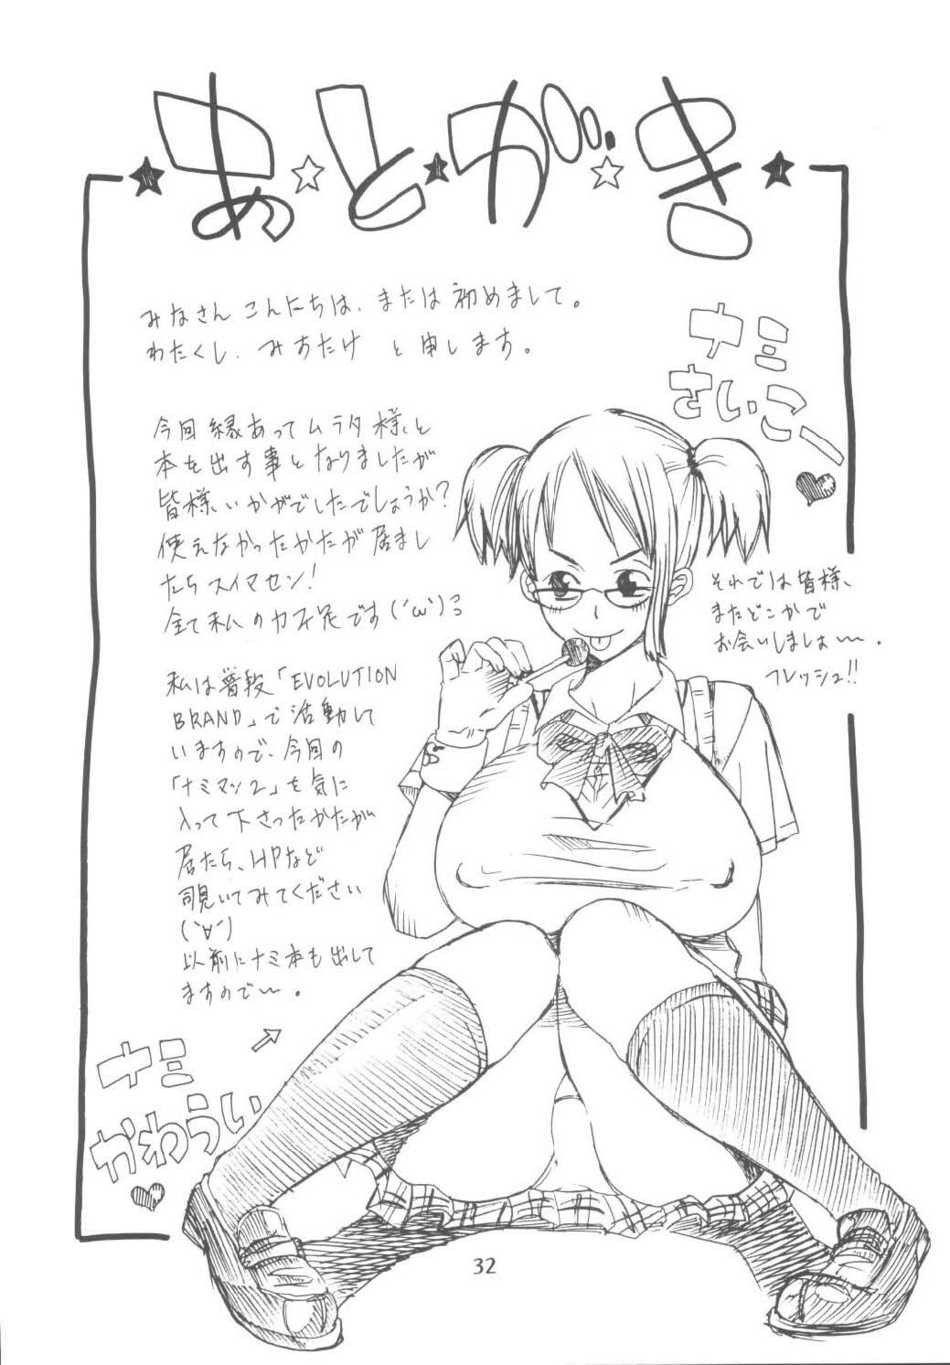 あとがき
みなさん こんにちは、または 初めまして。
わたくし、みすたけ と 申します。
ナミ
さいこー
今回 縁あって ムラタ様と
本を出す事となりましたが
皆様いかがでしたでしょうか？
使えなかったかたが居まし
たらスイマセン！
全て私の力不足です(´ω`)
私は普段「EVOLUTION
BRAND」で活動して
いますので、今回の
「ナミマン2」を気に
入って下さったかたが
居たら、HPなど
覗いてみてください
(`∀´)
以前にナミ本も出して
ますので〜。
それでは皆様、
またどこかで
お会いしましょ〜〜。
フレッシュ!!
ナミ
かわうい
32